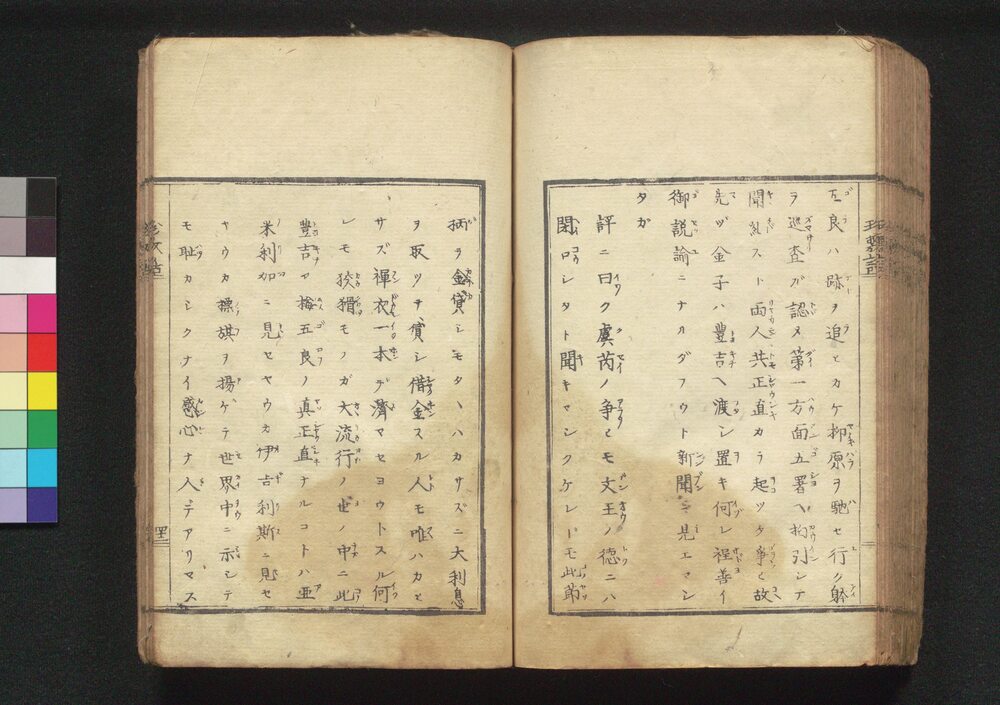 五良ハ跡ヲ追ヒカケ柳原ヲ馳セ行ク躰
ヲ巡査ガ認メ第一方面五署ヘ拘引シテ
聞糺スト両人共正直カラ起ツタ争ヒ故
先ヅ金子ハ豊吉ヘ渡シ置キ何レ程善イ
御説論ニナルダラウト新聞ニ見エマシ
タガ
評ニ曰ク虞芮ノ争ヒモ文王ノ徳ニハ
閉口シタト聞キマシタケレ𪜈此節
柄ヲ金貸シモタヽハカサズニ大利息
ヲ取ツテ貸シ借金スル人モ唯ハカヒ
サズ褌衣一本デ済マセヨウトスル何
レモ狡猾モノガ大流行ノ世ノ中ニ此
豊吉ヤ梅五良ノ真正直ナルコトハ亜
米利加ニ見セヤウカ伊吉利斯ニ見セ
ヤウカ標旗ヲ揚ゲテ世界中ニ示シテ
モ耻カシクナイ感心ナ人デアリマス